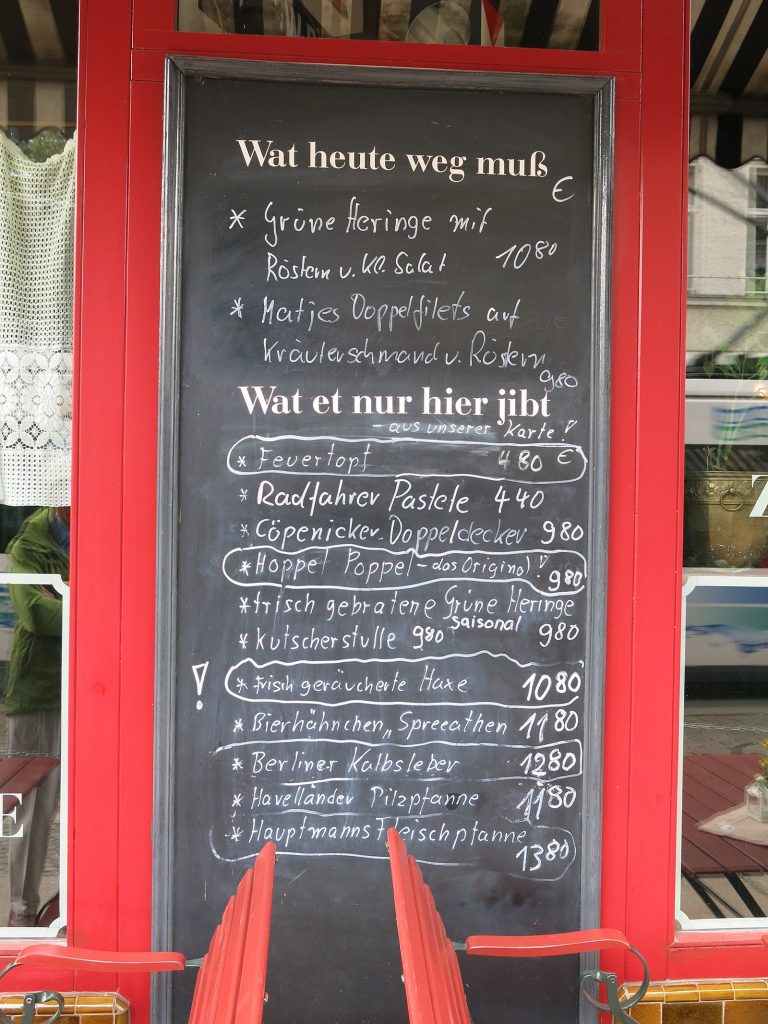 Wat heute weg muß
€
* Grüne Heringe mit
Röstern u. kl. Salat 10 80
* Matjes Doppelfilets auf
Kräuterschmand u. Röstern
980
Wat et nur hier jibt
- aus unserer Karte!
* Feuertopf 480 €
* Radfahrer Pastete 440
* Cöpenicker Doppeldecker 980
* Hoppel Poppel - das Original! 980
* frisch gebratene Grüne Heringe
saisonal 980
* Kutscherstulle 980
! * frisch geräucherte Haxe 1080
* Bierhähnchen „Spreeathen 1180
* Berliner Kalbsleber 1280
* Havelländer Pilzpfanne 1180
* Hauptmanns Fleischpfanne
1380
E
Z